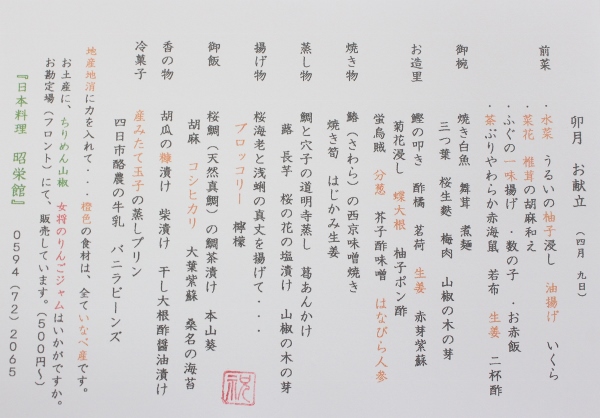 卯月　お献立　（四月　九日）
前菜　・水菜　うるいの柚子浸し　油揚げ　いくら
・菜花　椎茸の胡麻和え
・ふぐの一味揚げ　・数の子　・お赤飯
・茶ぶりやわらか赤海鼠　若布　生姜　二杯酢
御椀　焼き白魚　舞茸　煮麺
三つ葉　桜生麩　梅肉　山椒の木の芽
お造里　鰹の叩き　酢橘　茗荷　生姜　赤芽紫蘇
菊花浸し　蝶大根　柚子ポン酢
蛍烏賊　分葱　芥子酢味噌　はなびら人参
焼き物　鰆（さわら）の西京味噌焼き
焼き筍　はじかみ生姜
蒸し物　鯛と穴子の道明寺蒸し　葛あんかけ
蕗　長芋　桜の花の塩漬け　山椒の木の芽
揚げ物　桜海老と浅蜊の真丈を揚げて・・・
ブロッコリー　檸檬
御飯　桜鯛（天然真鯛）の鯛茶漬け　本山葵
胡麻　コシヒカリ　大葉紫蘇　桑名の海苔
香の物　胡瓜の糠漬け　柴漬け　干し大根酢醤油漬け
冷菓子　産みたて玉子の蒸しプリン
四日市酪農の牛乳　バニラビーンズ
地産地消に力を入れて・・・橙色の食材は、全ていなべ産です。
お土産に、ちりめん山椒　女将のりんごジャムはいかがですか。
お勘定場（フロント）にて、販売しています。（500円〜）
『日本料理　昭栄館』　0594（72）2065
祝